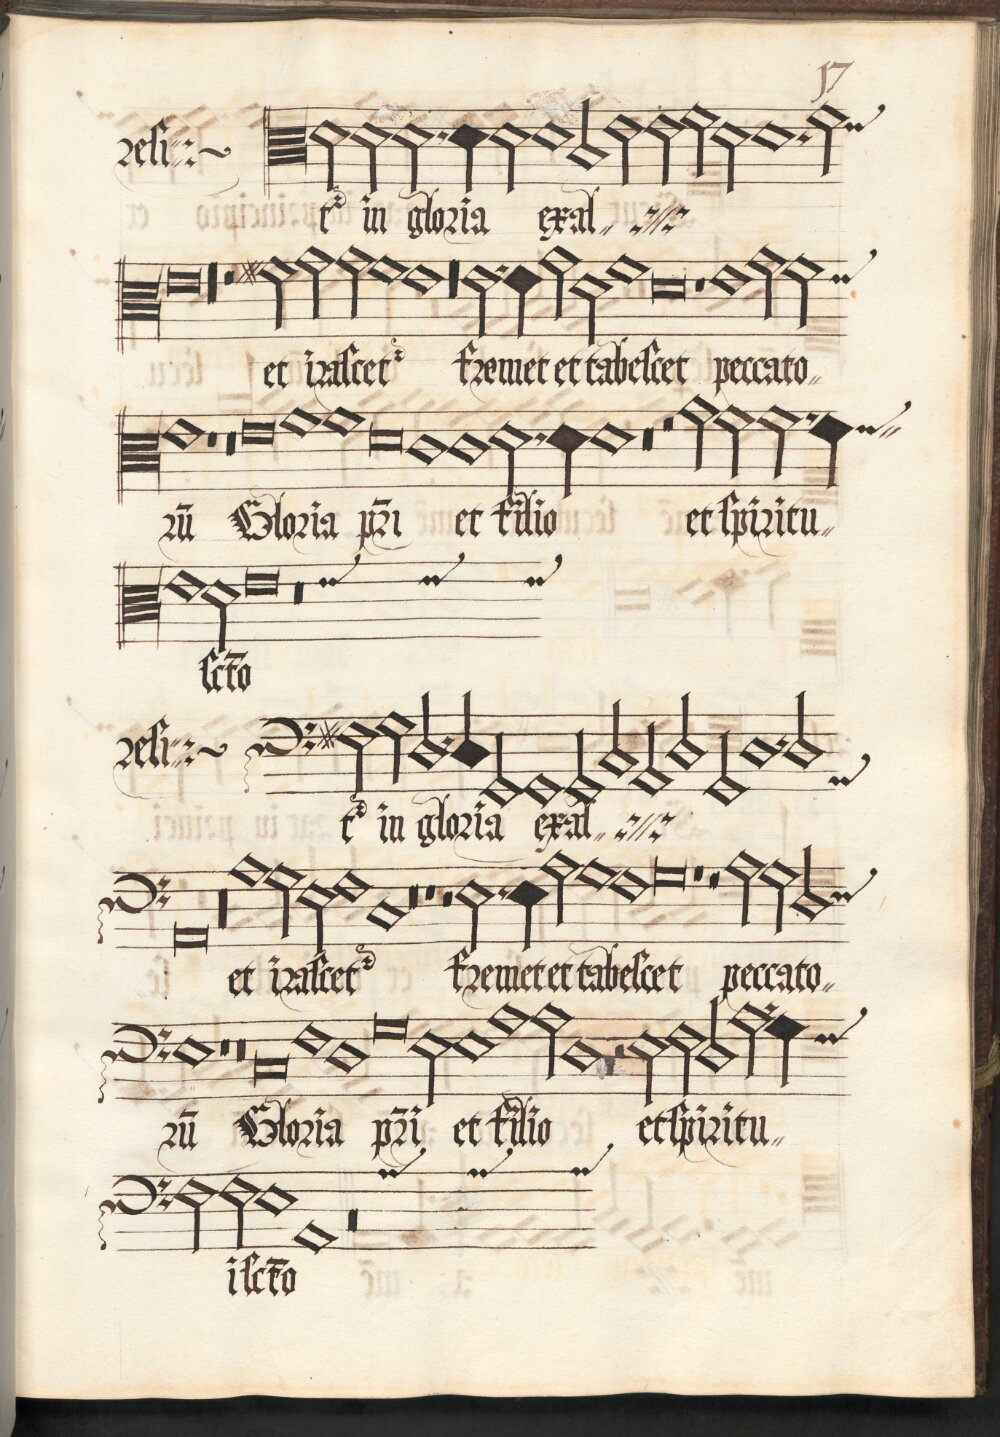 17
resi
t᷑ in gloria exal
et irascet᷑ fremet et tabescet peccato
rū Gloria pr̄i et filio et spiritu
sct̄o
resi
t᷑ in gloria exal
et irascet᷑ fremet et tabescet peccato
rū Gloria pr̄i et filio et spiritu
i sct̄o